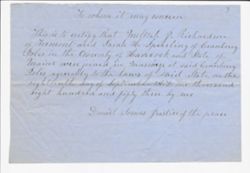 To whom it may concern
This is to certify that J. Richardson
of Tremont and Sarah H. Spurling of Cranberry
Isles in the County of Hancock and State of
Maine were joined in marriage at said Cranberry
Isles agreeably to the laws of said State on the
day of September one thousand
eight hundred and fifty three by me
Daniel Justice of the peace